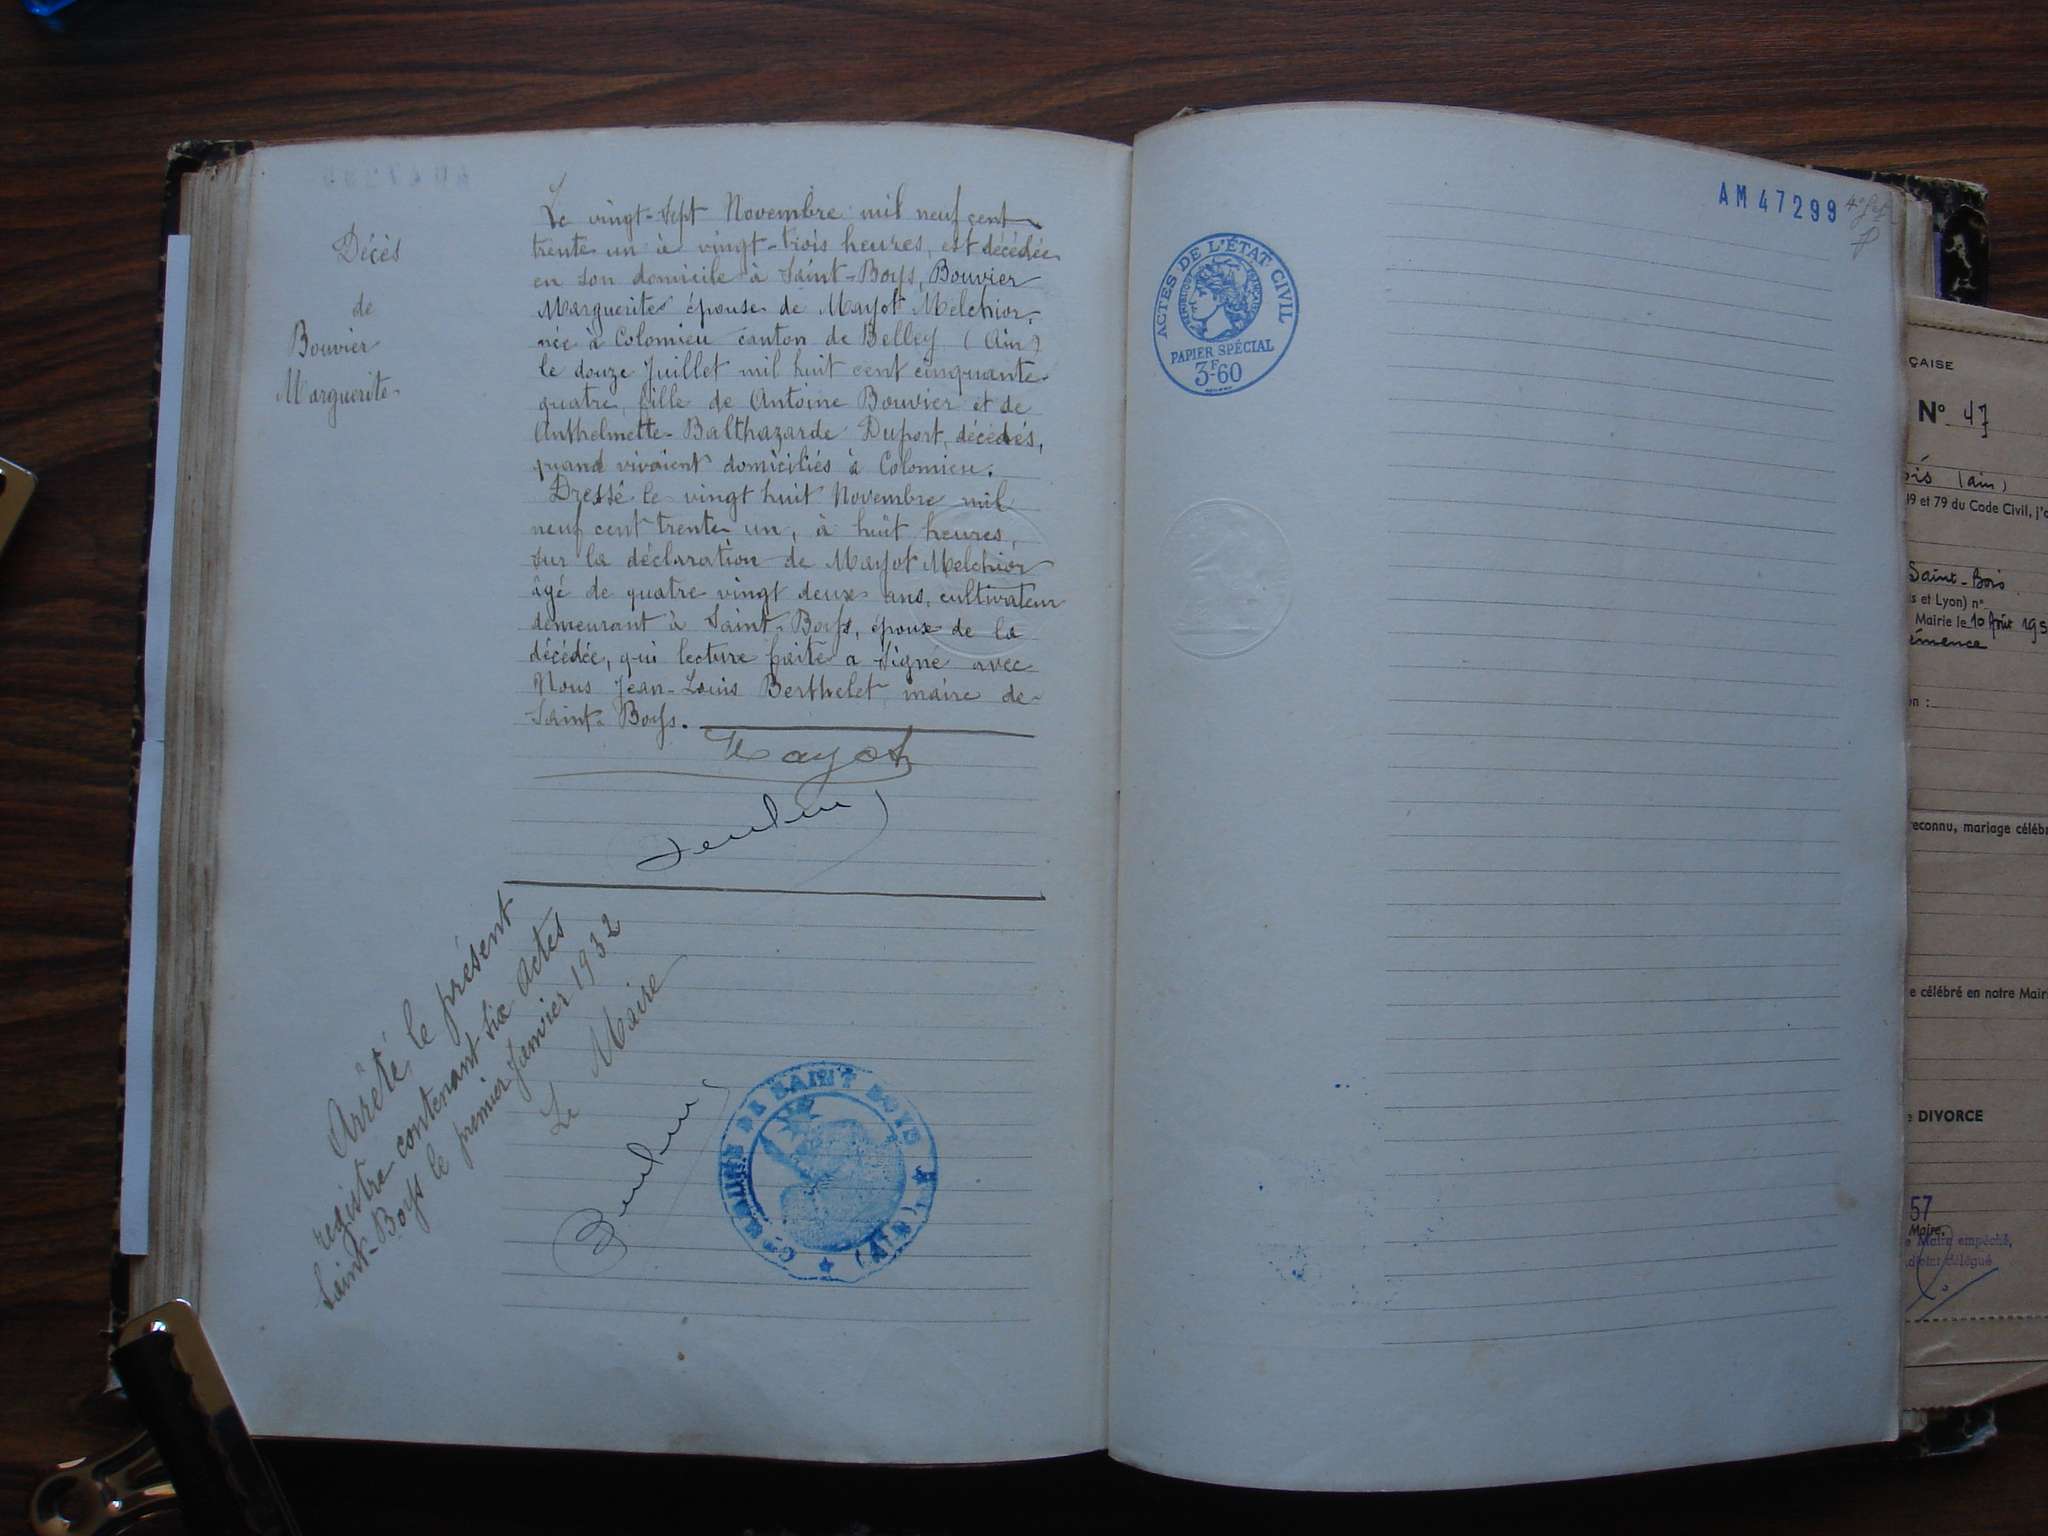 Décès
de
Bouvier
Marguerite
Le vingt-sept Novembre mil neuf cent
trente un à vingt-trois heures, est décédée
en son domicile à Saint-Boys, Bouvier
Marguerite épouse de Mayot Melchior,
née à Colomieu canton de Belley (Ain)
le douze Juillet mil huit cent cinquante
quatre, fille de Antoine Bouvier et de
Anthelmette-Balthazarde Duport, décédés,
quand vivaient domiciliés à Colomieu.
Dressé le vingt huit Novembre mil
neuf cent trente un, à huit heures,
sur la déclaration de Mayot Melchior
âgé de quatre vingt deux ans, cultivateur
demeurant à Saint-Boys, époux de la
décédée, qui lecture faite a signé avec
Nous Jean-Louis Berthelet, maire de
Saint-Boys.
Mayot
Arrêté le présent
registre contenant six actes
Saint-Boys le premier Janvier 1932
Le Maire
MAIRIE DE SAINT BOIS (AIN)
AM 47299
ACTES DE L'ÉTAT CIVIL
PAPIER SPÉCIAL
3F-60
ÇAISE
N° 47
ois (ain)
19 et 79 du Code Civil, j'
Saint-Bois
s et Lyon) n°
Mairie le 10 Août 195
émence
n :
reconnu, mariage céléb
e célébré en notre Mair
DIVORCE
57
Maire,
Maire empêché,
délégué